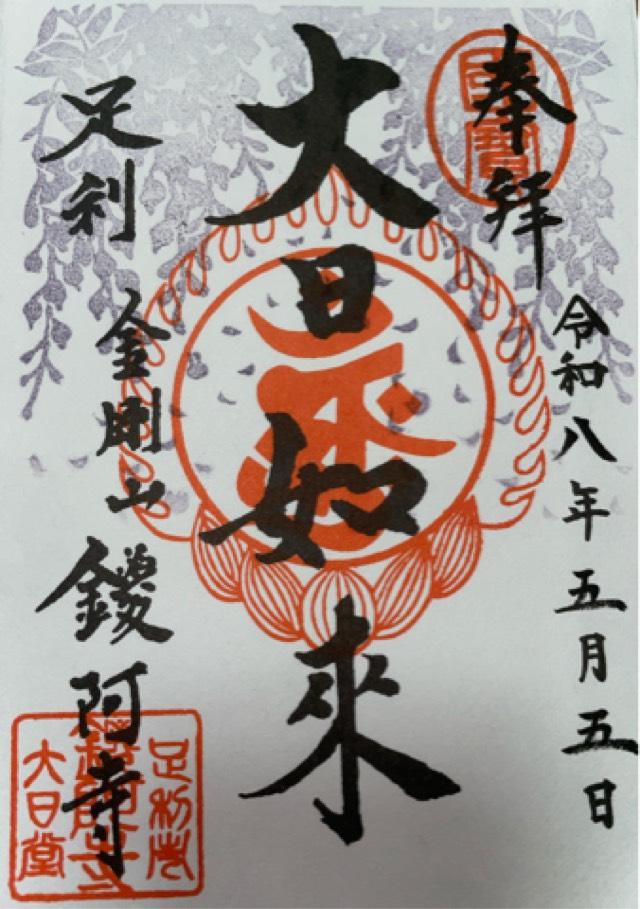 奉拜
令和八年五月五日
國寶
大日如來
足利
金剛山
鑁阿寺
足利市
鑁阿寺
大日堂